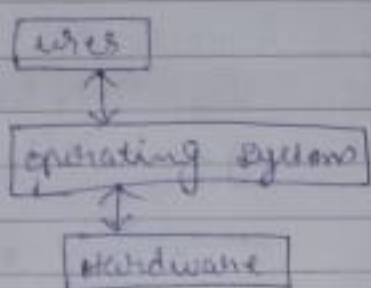 user
operating system
Hardware